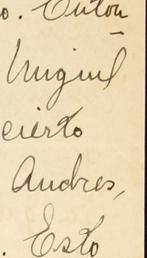 o. Anton
Miguel
cierto
Andres,
. Esto